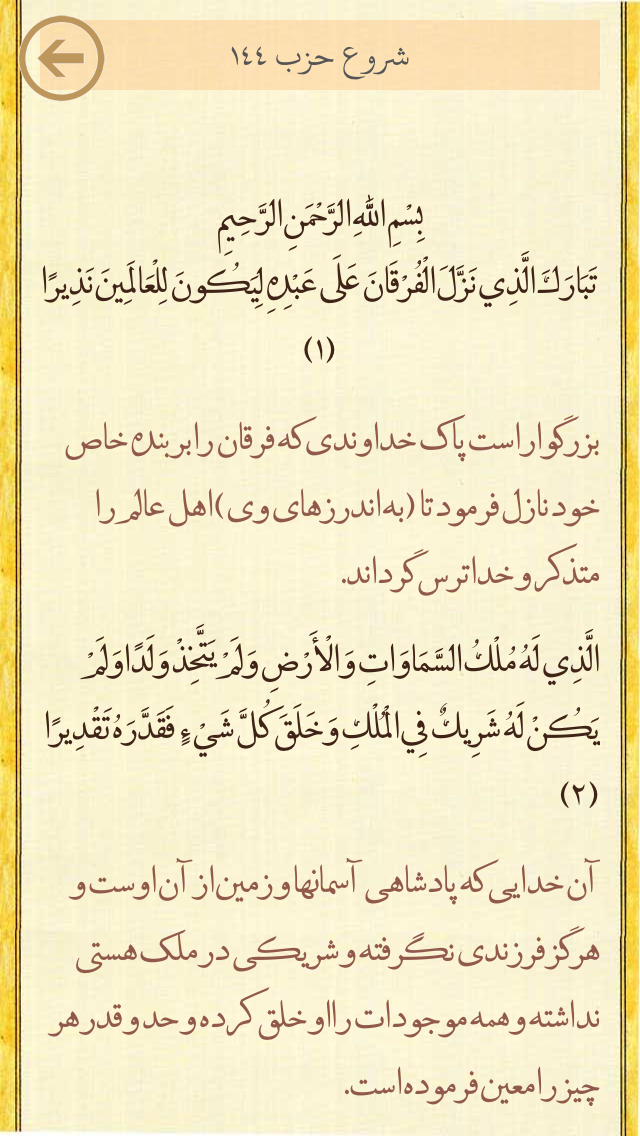 شروع حزب ١٤٤
بِسْمِ اللَّهِ الرَّحْمَنِ الرَّحِيمِ
تَبَارَكَ الَّذِي نَزَّلَ الْفُرْقَانَ عَلَى عَبْدِهِ لِيَكُونَ لِلْعَالَمِينَ نَذِيرًا
(١)
بزرگوار است پاک خداوندی که فرقان را بر بنده خاص
خود نازل فرمود تا (به اندرزهای وی) اهل عالم را
متذکر و خداترس گرداند.
الَّذِي لَهُ مُلْكُ السَّمَاوَاتِ وَالْأَرْضِ وَلَمْ يَتَّخِذْ وَلَدًا وَلَمْ
يَكُنْ لَهُ شَرِيكٌ فِي الْمُلْكِ وَخَلَقَ كُلَّ شَيْءٍ فَقَدَّرَهُ تَقْدِيرًا
(٢)
آن خدایی که پادشاهی آسمانها و زمین از آن اوست و
هرگز فرزندی نگرفته و شریکی در ملک هستی
نداشته و همه موجودات را او خلق کرده و حد و قدر هر
چیز را معین فرموده است.